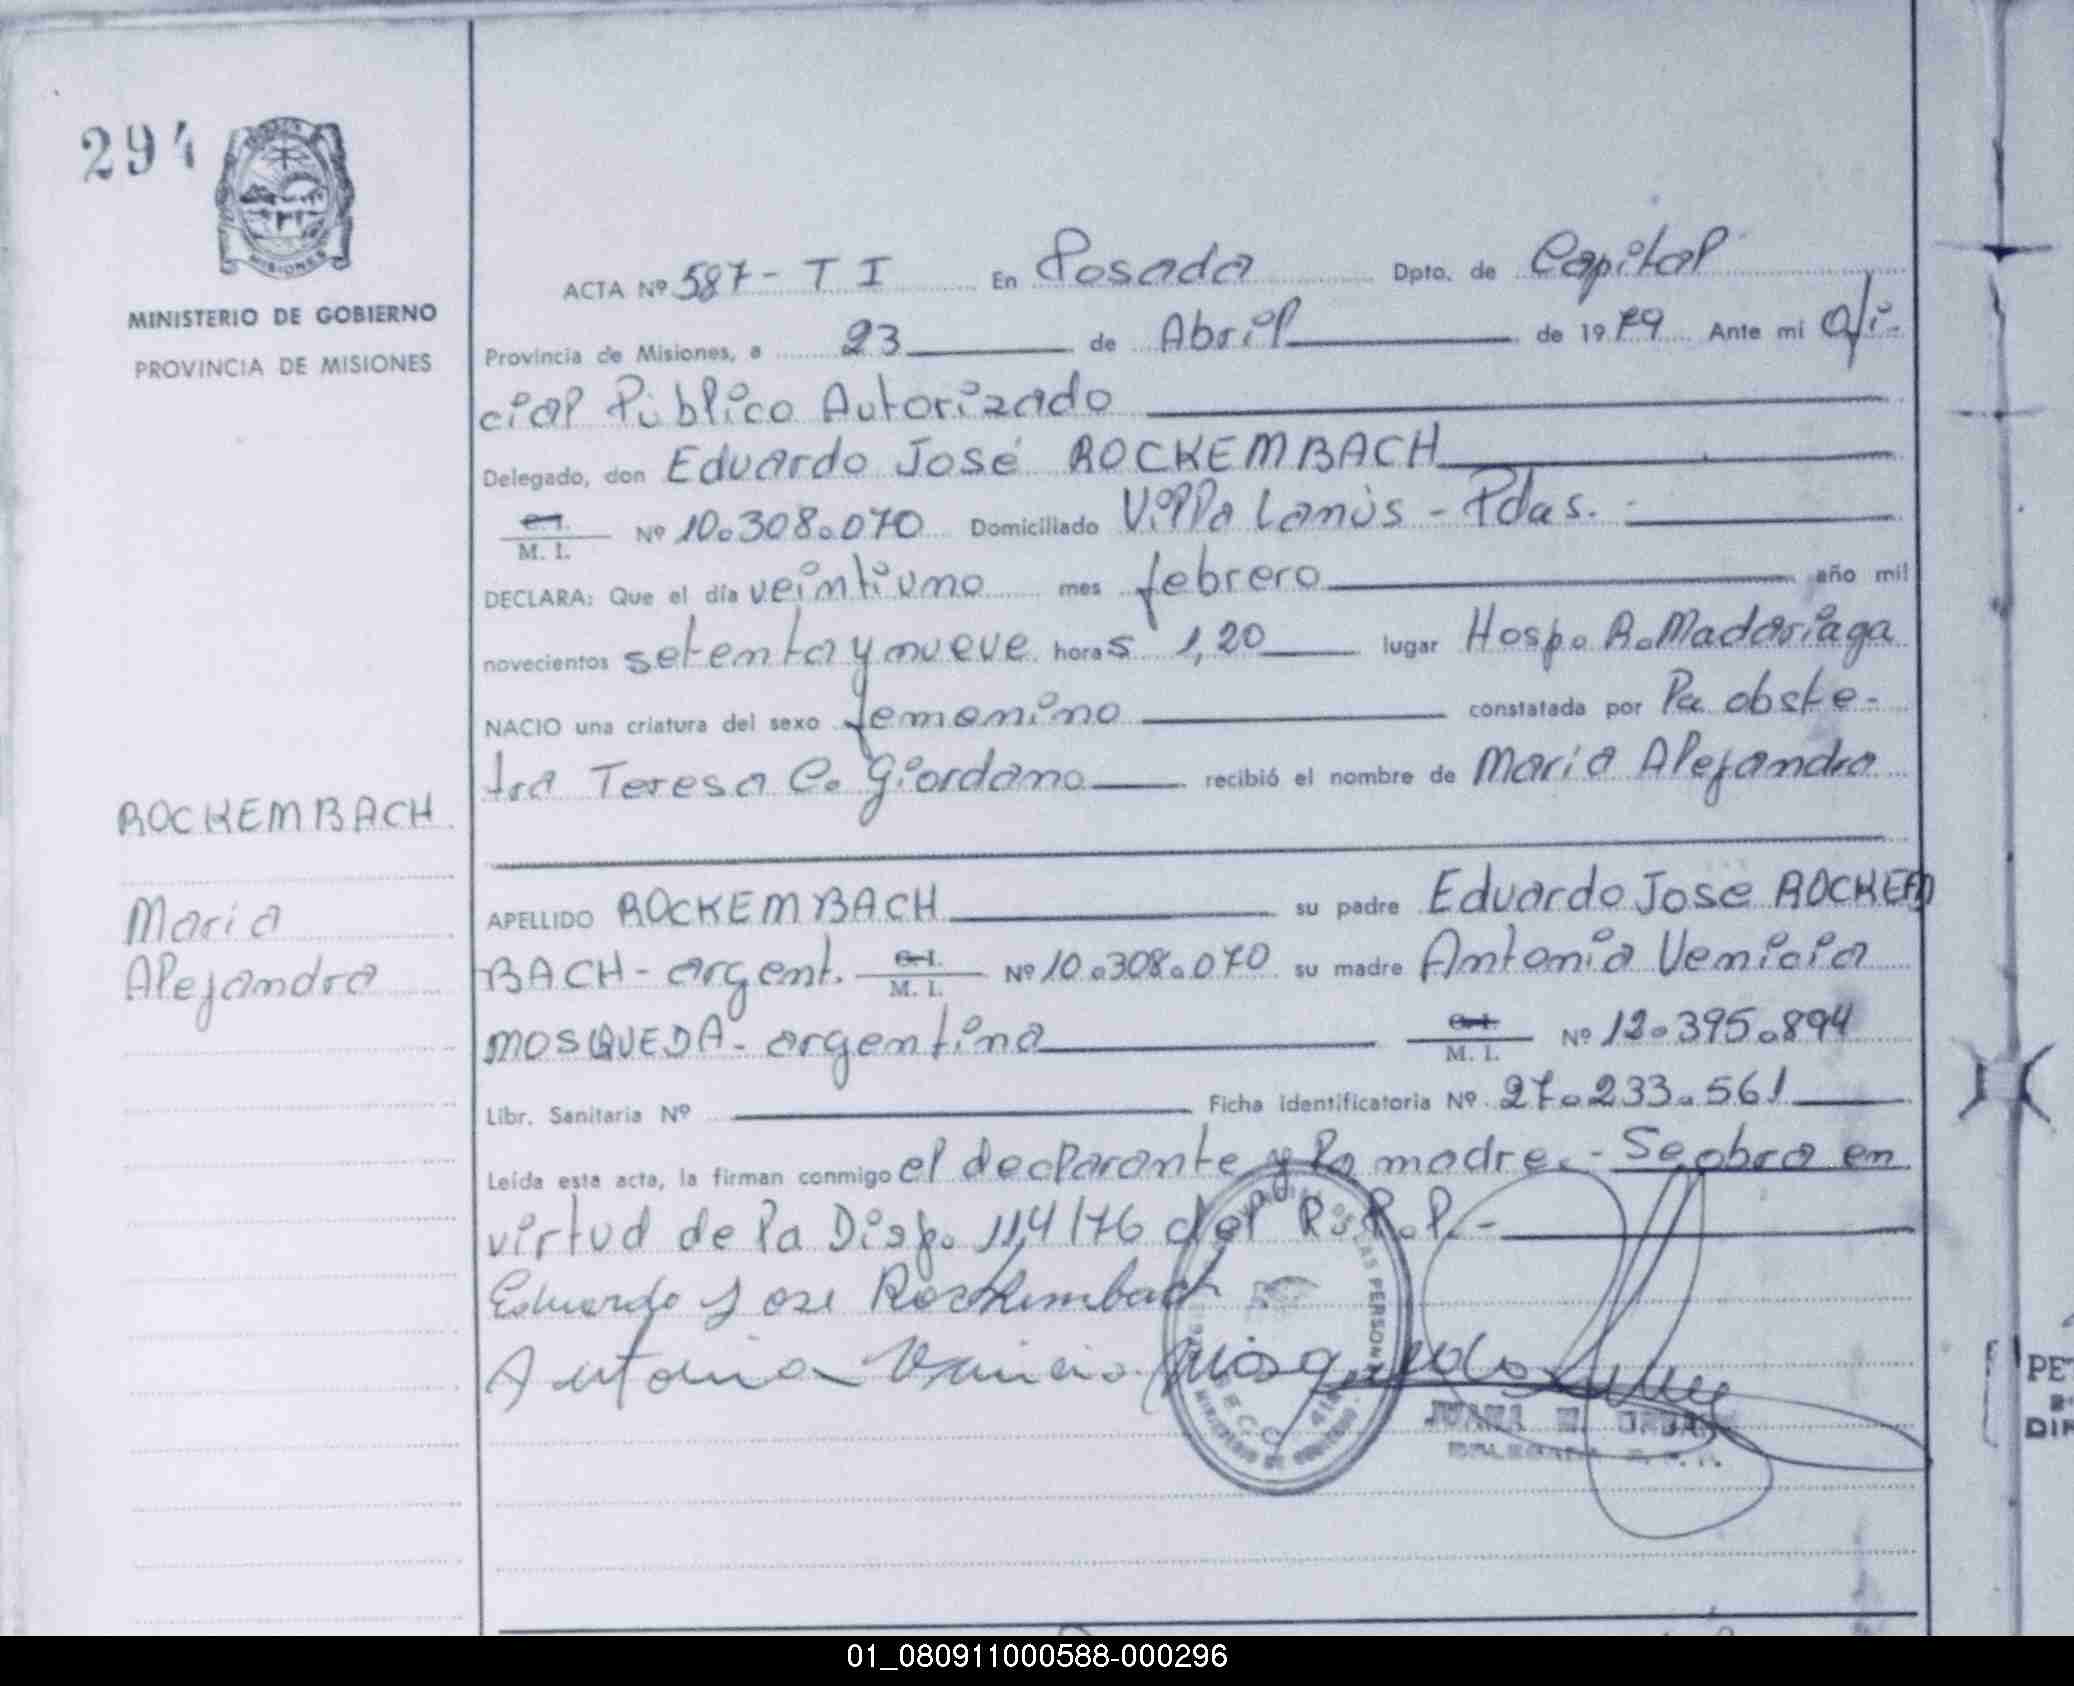 294
MISIONES
MINISTERIO DE GOBIERNO
PROVINCIA DE MISIONES
ROCKEMBACH
Maria
Alejandra
ACTA Nº 587 - T I En Posada Dpto. de Capital
Provincia de Misiones, a 23 de Abril de 1979 Ante mi Ofi-
cial Público Autorizado
Delegado, don Eduardo José ROCKEMBACH
C.I. M. I. Nº 10.308.070 Domiciliado Villa Lanús - Pdas.
DECLARA: Que el día veintiuno mes febrero año mil
novecientos setenta y nueve horas 1,20 lugar Hosp. R. Madariaga
NACIO una criatura del sexo femenino constatada por la obste-
tra Teresa C. Giordano recibió el nombre de Maria Alejandra
APELLIDO ROCKEMBACH su padre Eduardo José ROCKEM
BACH - argent. C.I. M. I. Nº 10.308.070 su madre Antonia Venicia
MOSQUEDA - argentina C.I. M. I. Nº 12.395.894
Libr. Sanitaria Nº Ficha identificatoria Nº 27.233.561
Leída esta acta, la firman conmigo el declarante y la madre. - Se obra en
virtud de la Disp. 114/76 del R.R.P. -
Eduardo Jose Rockembach
Antonia Venicia Mosqueda
DE LAS PERSONAS
MINISTERIO DE GOBIERNO
JUANA
DELEGADA
PE
DIR
01_080911000588-000296